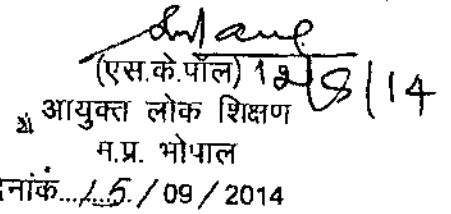 (एस.के.पॉल) 12/8/14
आयुक्त लोक शिक्षण
म.प्र. भोपाल
दिनांक...15./09/2014